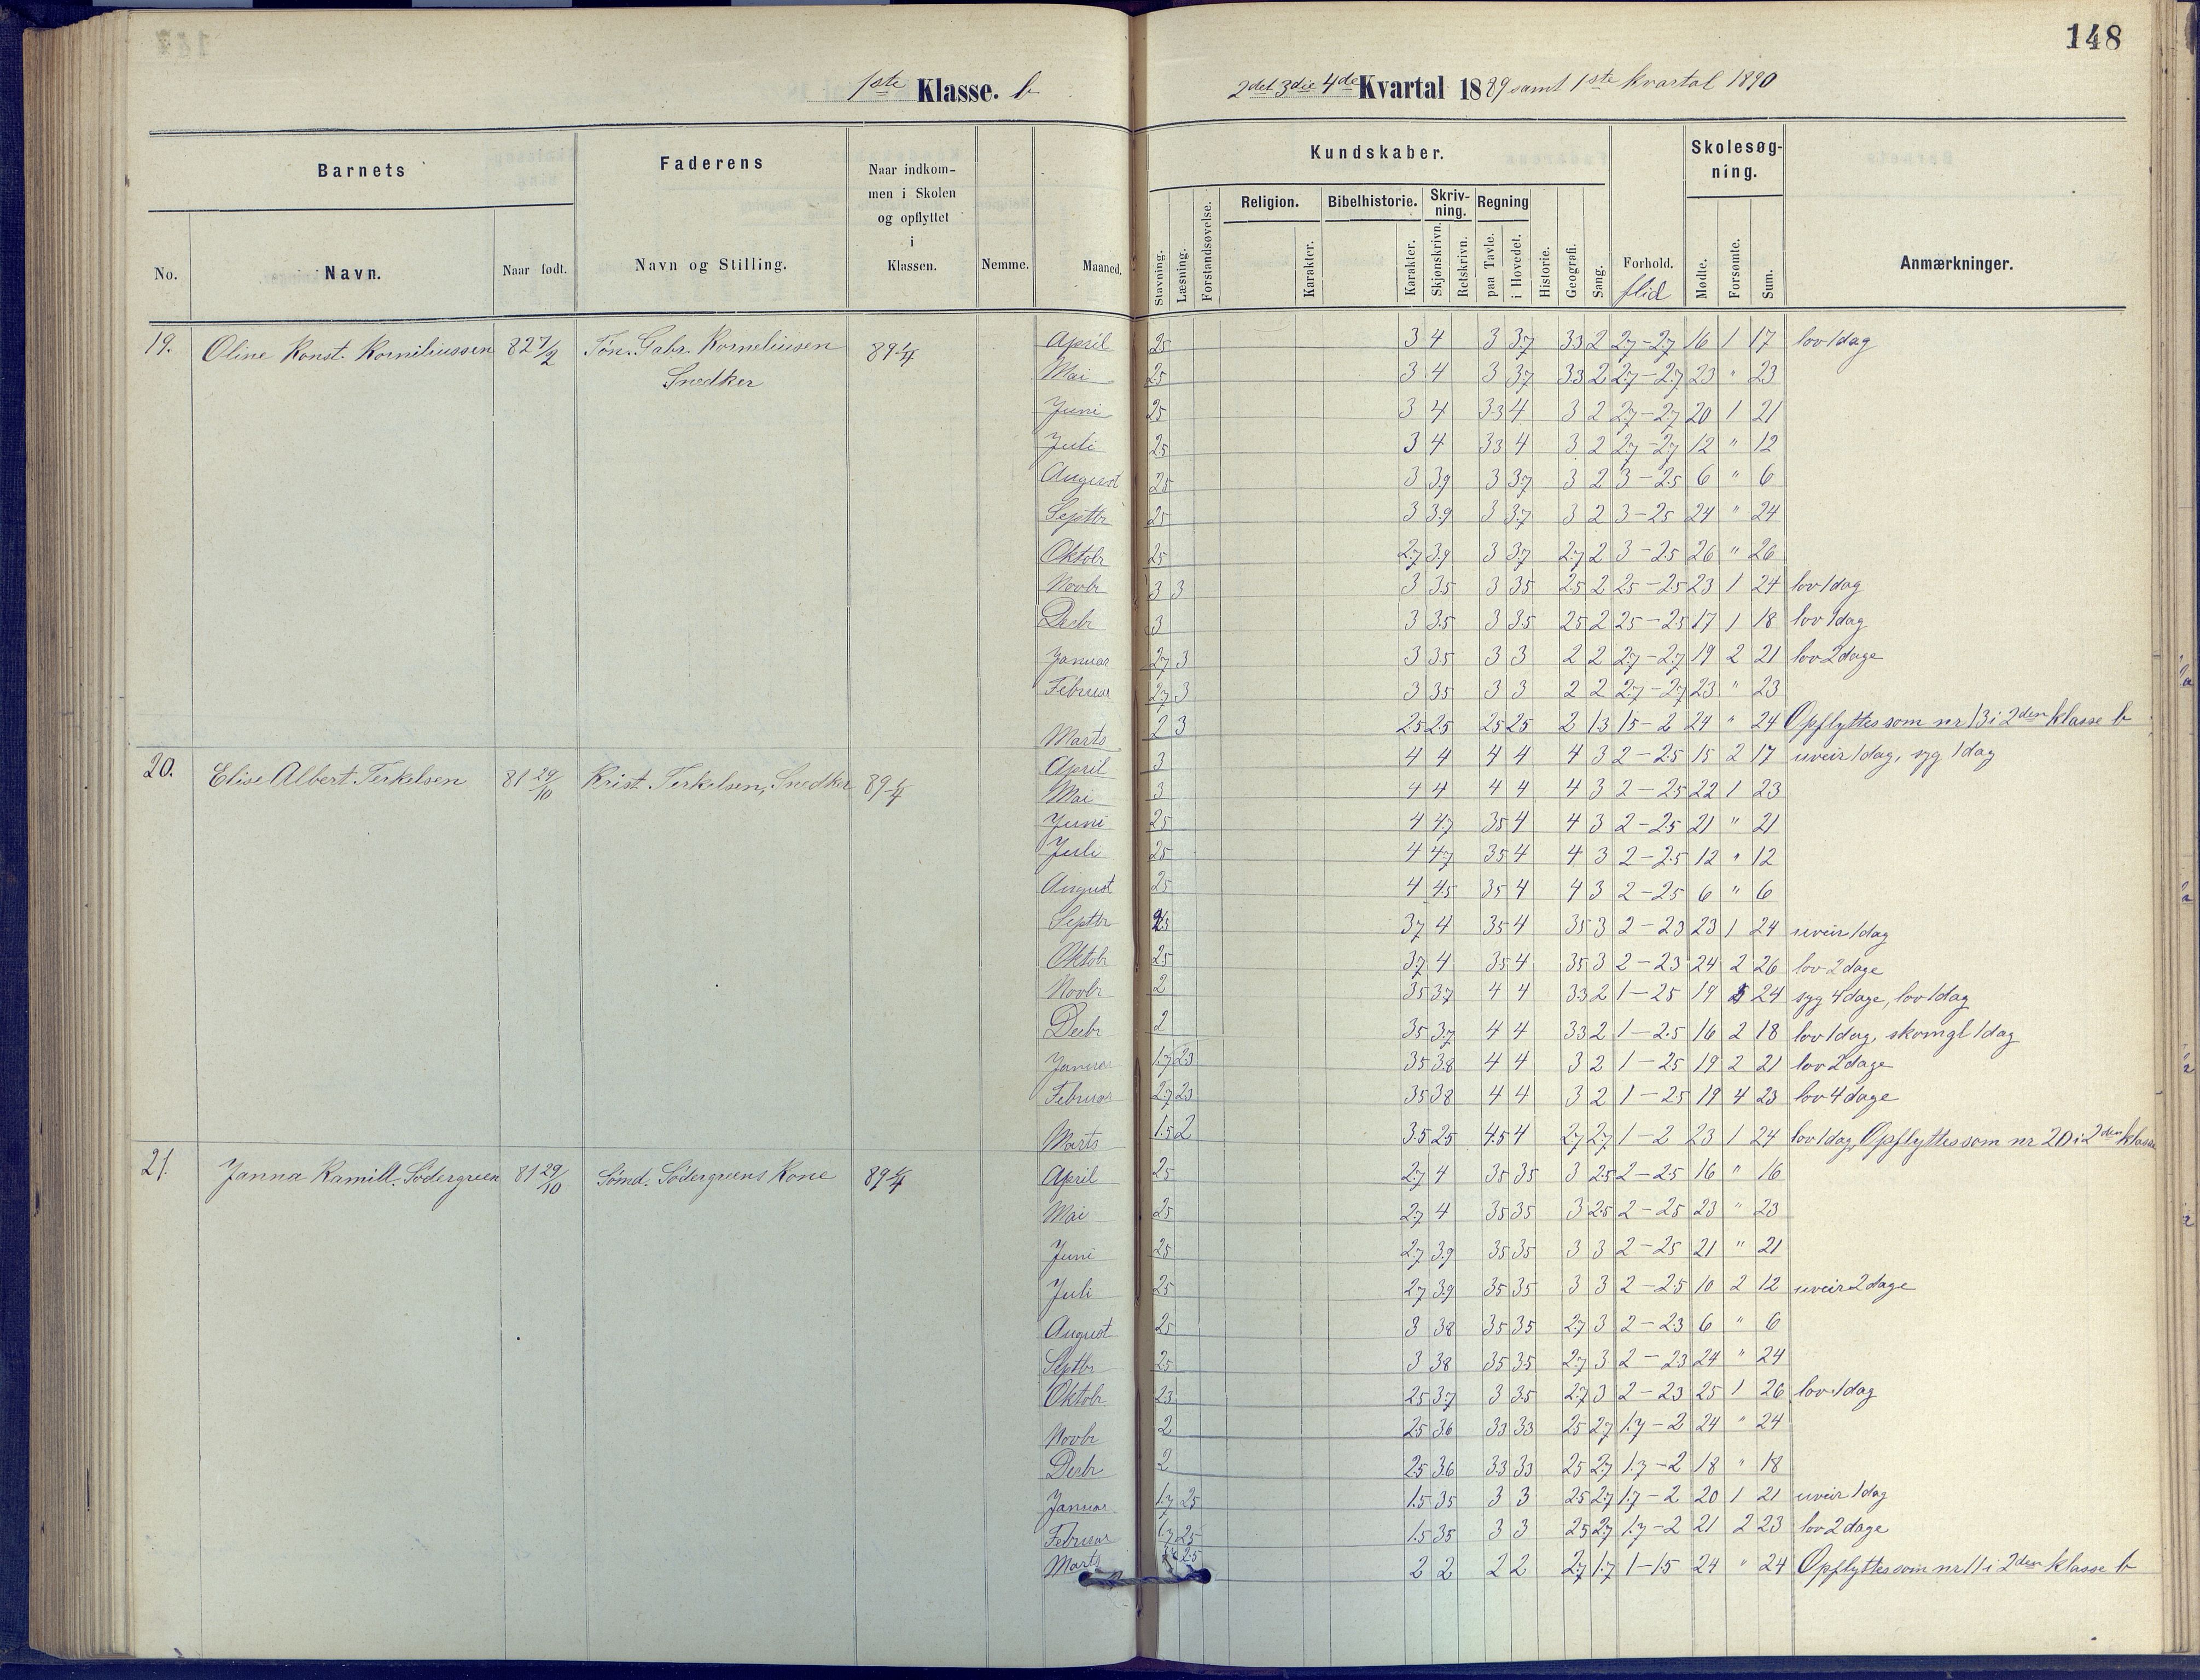 148
1ste Klasse. b
2det 3die 4de Kvartal 1889 samt 1ste kvartal 1890
Barnets
Faderens
Naar indkommen i Skolen og opflyttet i Klassen.
Nemme.
Maaned.
No.
Navn.
Naar født.
Navn og Stilling.
Kundskaber.
Stavning.
Læsning.
Forstandsøvelse.
Religion.
Karakter.
Bibelhistorie.
Karakter.
Skrivning.
Skjønskrivn.
Retskrivn.
Regning
paa Tavle.
i Hovedet.
Historie.
Geografi.
Sang.
Forhold.
flid
Skolesøgning.
Mødte.
Forsømte.
Sum.
Anmærkninger.
19. Oline Konst. Korniliussen 82 7/2 Tøn. Gabr. Korneliusen 89 1/4 April 25 3 4 3 3.7 33 2 2.7-2.7 16 1 17 lov 1dag
Snedker Mai 25 3 4 3 37 33 2 2.7-2.7 23 " 23
Juni 25 3 4 33 4 3 2 2.7-2.7 20 1 21
Juli 25 3 4 33 4 3 2 2.7-2.7 12 " 12
August 25 3 39 3 37 3 2 3-2.5 6 " 6
Septbr 25 3 39 3 37 3 2 3-25 24 " 24
Oktobr 25 2.7 39 3 3.7 2.7 2 3-2.5 26 " 26
Novbr 3 3 3 35 3 35 25 2 25-25 23 1 24 lov 1dag
Decbr 3 3 3.5 3 3.5 25 2 25-25 17 1 18 lov 1dag
Januar 27 3 3 35 3 3 2 2 2.7-2.7 19 2 21 lov 2dage
Februar 27 3 3 35 3 3 2 2 27-27 23 " 23
Marts 2 3 25 25 25 25 2 1.3 15-2 24 " 24 Opflyttes som nr 13 i 2den klasse b
20. Elise Albert. Terkelsen 81 29/10 Krist. Terkelsen, Snedker 89 1/4 April 3 4 4 4 4 4 3 2-2.5 15 2 17 uveir 1dag, syg 1dag
Mai 3 4 4 4 4 4 3 2-25 22 1 23
Juni 25 4 47 35 4 4 3 2-2.5 21 " 21
Juli 25 4 47 35 4 4 3 2-2.5 12 " 12
August 25 4 45 35 4 4 3 2-25 6 " 6
Septbr 25 37 4 35 4 35 3 2-23 23 1 24 uveir 1dag
Oktobr 25 37 4 35 4 35 3 2-23 24 2 26 lov 2dage
Novbr 2 35 37 4 4 33 2 1-25 19 5 24 syg 4dage, lov 1dag
Decbr 2 35 37 4 4 33 2 1-2.5 16 2 18 lov 1dag, skomgl 1dag
Januar 1.7 23 35 38 4 4 3 2 1-25 19 2 21 lov 2dage
Februar 2.7 23 35 38 4 4 3 2 1-25 19 4 23 lov 4dage
Marts 1.5 2 3.5 25 4.5 4 2.7 2.7 1-2 23 1 24 lov 1dag, Opflyttes som nr 20 i 2den klasse
21. Janna Kamill. Södergreen 81 29/10 Sømd. Södergreens Kone 89 1/4 April 25 27 4 35 35 3 25 2-25 16 " 16
Mai 25 27 4 35 35 3 2.5 2-25 23 " 23
Juni 25 27 39 35 35 3 3 2-25 21 " 21
Juli 25 27 39 35 35 3 3 2-2.5 10 2 12 uveir 2dage
August 25 3 38 35 35 27 3 2-23 6 " 6
Septbr 25 3 38 35 35 27 3 2-23 24 " 24
Oktobr 23 25 37 3 3.5 27 3 2-23 25 1 26 lov 1dag
Novbr 2 25 36 33 33 25 27 1.7-2 24 " 24
Decbr 2 25 36 33 33 25 27 1.7-2 18 " 18
Januar 1.7 25 1.5 35 3 3 25 27 1.7-2 20 1 21 uveir 1dag
Februar 1.7 25 1.5 35 3 3 25 27 1.7-2 21 2 23 lov 2dage
Marts 25 2 2 2 2 27 1.7 1-1.5 24 " 24 Opflyttes som nr 11 i 2den klasse b